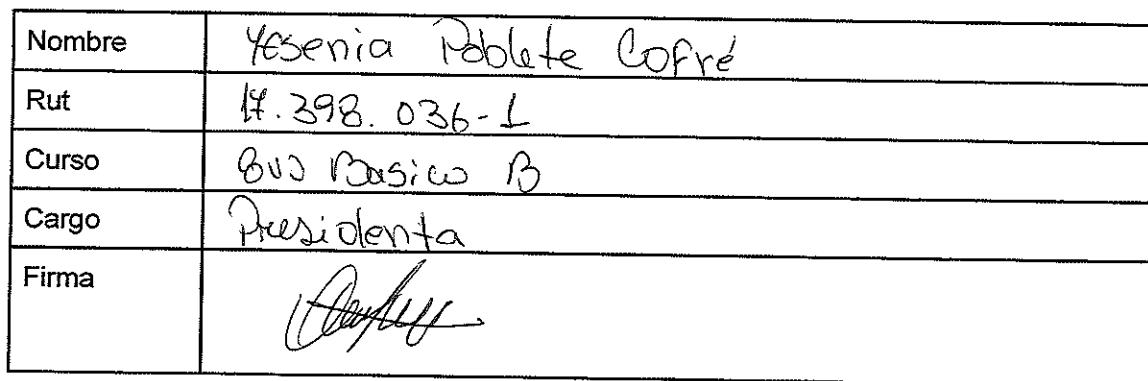 Nombre Yesenia Poblete Cofré
Rut 17.398.036-1
Curso 8vo Basico B
Cargo Presidenta
Firma